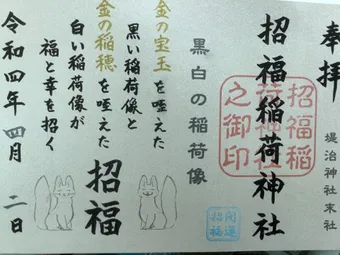 奉拝
堤治神社末社
招福稲荷神社
招福稲
荷神社
之御印
黒白の稲荷像
金の宝玉を咥えた
黒い稲荷像と
金の稲穂を咥えた
白い稲荷像が
福と幸を招く
招福
開運
招福
令和四年四月二日